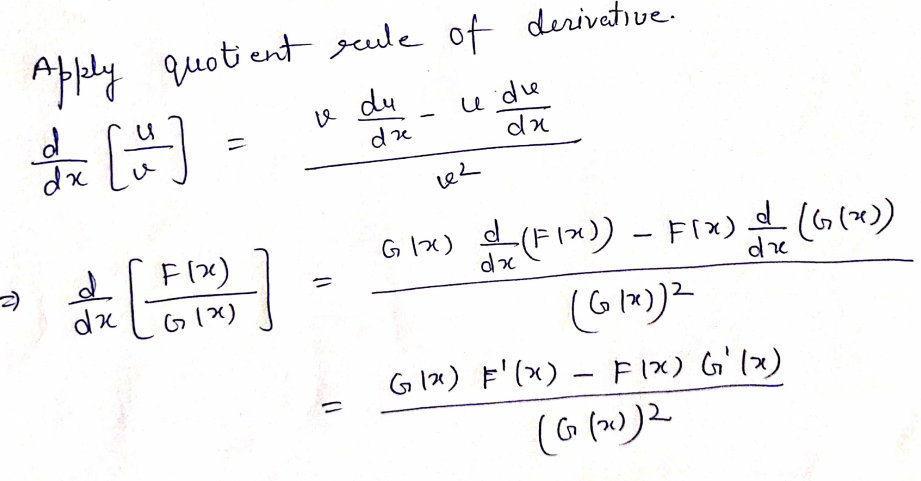 Apply quotient rule of derivative.
d/dx [u/v] = (v du/dx - u dv/dx) / v²
⇒ d/dx [F(x)/G(x)] = (G(x) d/dx (F(x)) - F(x) d/dx (G(x))) / (G(x))²
= (G(x) F'(x) - F(x) G'(x)) / (G(x))²